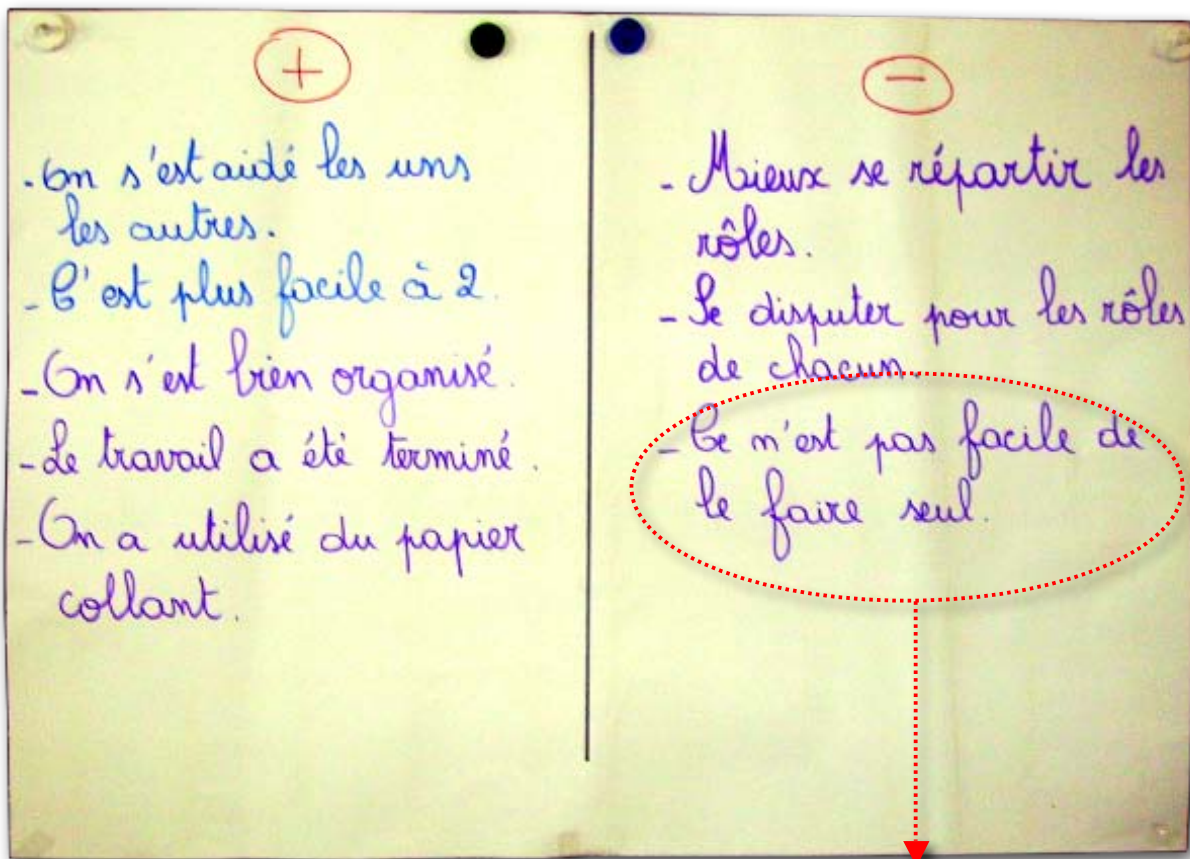 +
- On s'est aidé les uns
les autres.
- C'est plus facile à 2.
- On s'est bien organisé.
- Le travail a été terminé.
- On a utilisé du papier
collant.
-
- Mieux se répartir les
rôles.
- Se disputer pour les rôles
de chacun.
- Ce n'est pas facile de
le faire seul.